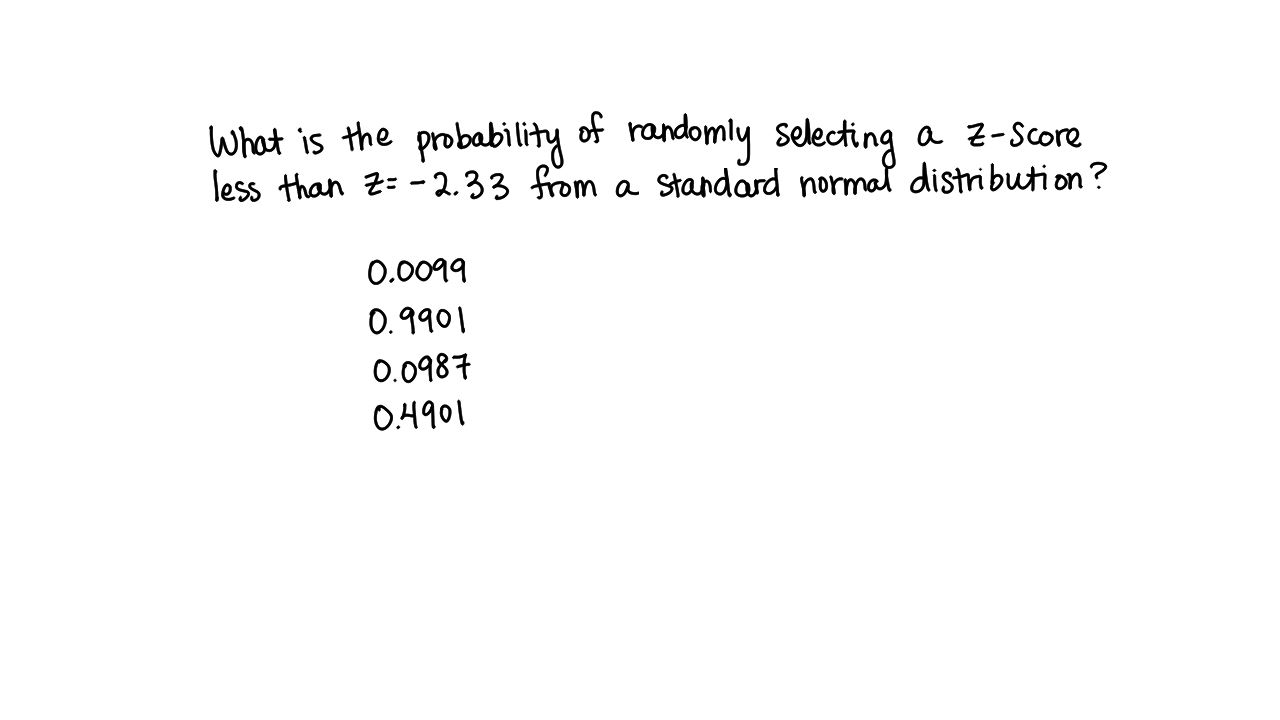 What is the probability of randomly selecting a z-score
less than z=-2.33 from a standard normal distribution?
0.0099
0.9901
0.0987
0.4901